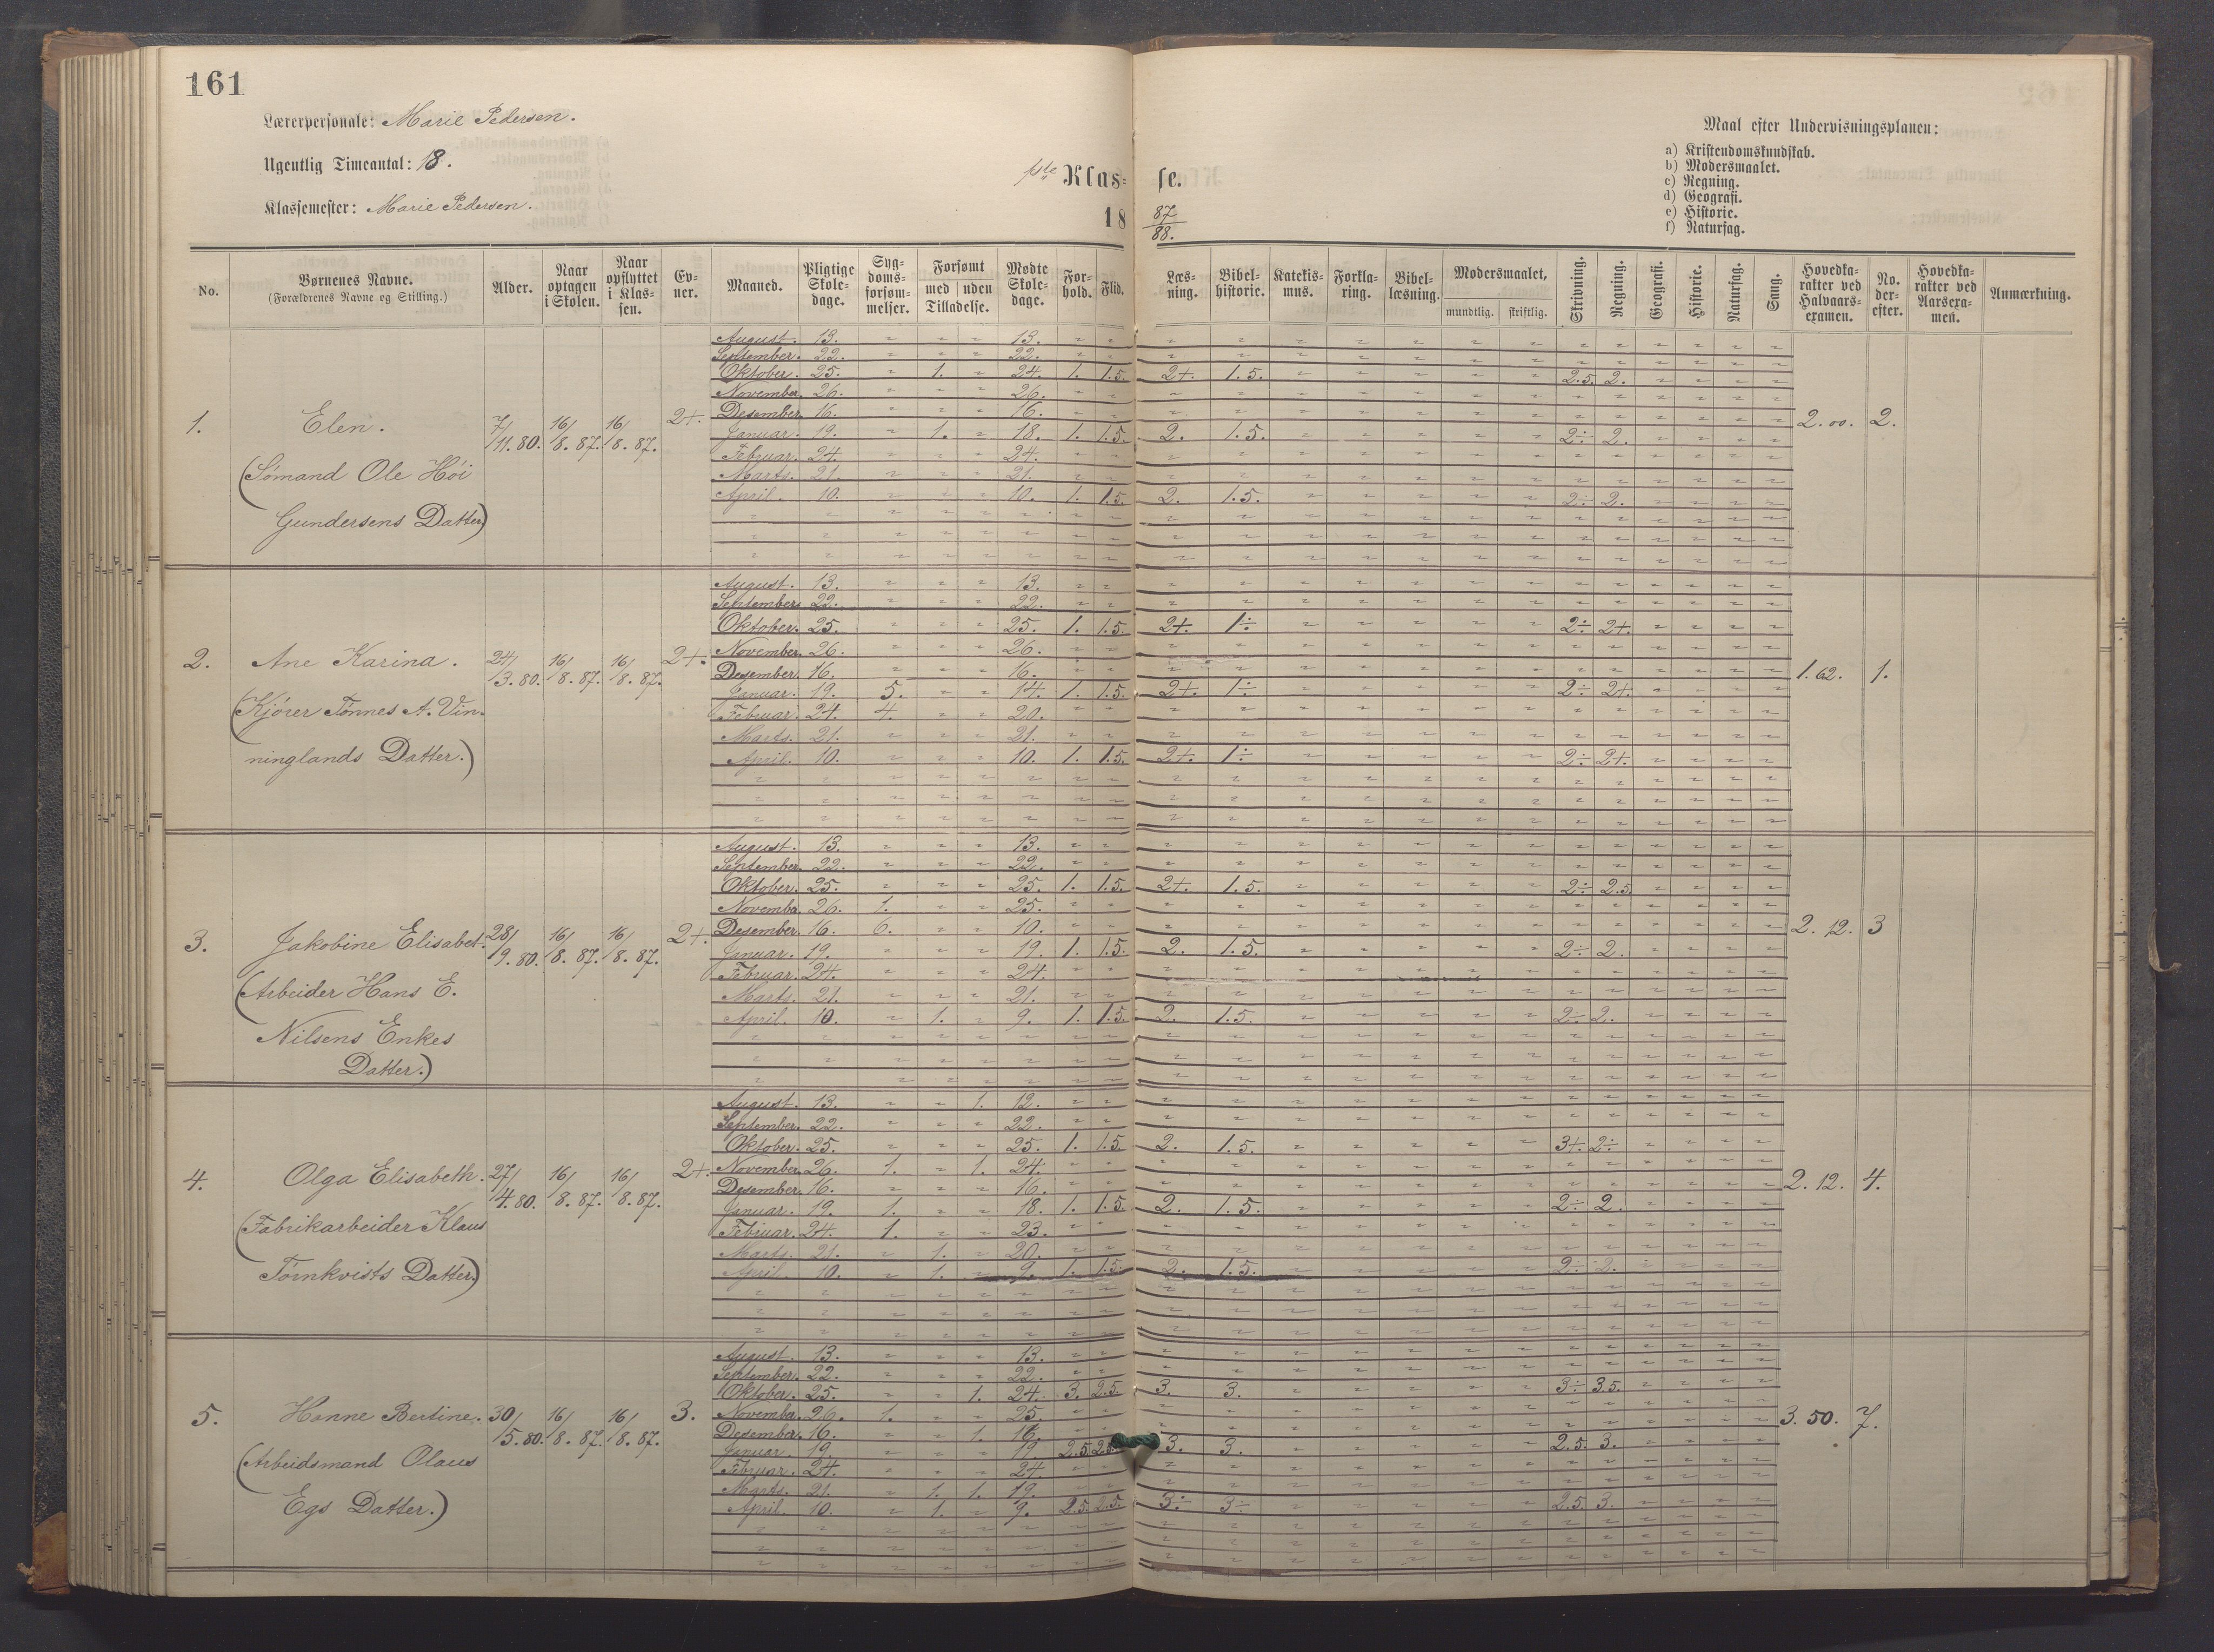 161
Lærerpersonale: Marie Pedersen.
Ugentlig Timeantal: 18.
Klassemester: Marie Pedersen.
1ste Klas- se.
18 87/88.
Maal efter Undervisningsplanen:
a) Kristendomskundskab.
b) Modersmaalet.
c) Regning.
d) Geografi.
e) Historie.
f) Naturfag.
No. Børnenes Navne. (Forældrenes Navne og Stilling.) Alder. Naar optagen i Skolen. Naar opflyttet i Klassen. Evner. Maaned. Pligtige Skoledage. Sygdomsforsømmelser. Forsømt med uden Tilladelse. Mødte Skoledage. Forhold. Flid. Læsning. Bibelhistorie. Katekismus. Forklaring. Bibellæsning. Modersmaalet, mundtlig. skriftlig. Skrivning. Regning. Geografi. Historie. Naturfag. Sang. Hovedkarakter ved Halvaarsexamen. No. derefter. Hovedkarakter ved Aarsexamen. Anmærkning.
August. 13. " " " 13.
September. 22. " " " 22.
Oktober. 25. " 1. " 24. 1. 1.5. 2+. 1.5. 2.5. 2.
November. 26. " " " 26.
1. Elen. 7/11.80. 16/8.87. 16/8.87. 2+. Desember. 16. " " " 16. 2.00. 2.
Januar. 19. " 1. " 18. 1. 1.5. 2. 1.5. 2÷ 2.
Februar. 24. " " " 24.
(Sømand Ole Høi Marts. 21. " " " 21.
April. 10. " " " 10. 1. 1.5. 2. 1.5. 2÷ 2.
Gundersens Datter)
August. 13. " " " 13.
September. 22. " " " 22.
Oktober. 25. " " " 25. 1. 1.5. 2+. 1÷ 2÷ 2+.
November. 26. " " " 26.
2. Ane Karina. 24/3.80. 16/8.87. 16/8.87. 2+. Desember. 16. " " " 16. 1.62. 1.
Januar. 19. 5. " " 14. 1. 1.5. 2+. 1÷ 2÷ 2+.
(Kjører Tønnes A. Vin- Februar. 24. 4. " " 20.
Marts. 21. " " " 21.
ninglands Datter.) April. 10. " " " 10. 1. 1.5. 2+. 1÷ 2÷ 2+.
August. 13. " " " 13.
September. 22. " " " 22.
Oktober. 25. " " " 25. 1. 1.5. 2+. 1.5. 2÷ 2.5.
November. 26. 1. " " 25.
3. Jakobine Elisabet. 28/9.80. 16/8.87. 16/8.87. 2+. Desember. 16. 6. " " 10. 2.12. 3
Januar. 19. " " " 19. 1. 1.5. 2. 1.5. 2÷ 2.
Februar. 24. " " " 24.
(Arbeider Hans E. Marts. 21. " " " 21.
April. 10. " 1. " 9. 1. 1.5. 2. 1.5. 2÷ 2.
Nilsens Enkes
Datter.)
August. 13. " " 1. 12.
September. 22. " " " 22.
Oktober. 25. " " " 25. 1. 1.5. 2. 1.5. 3+. 2÷
November. 26. 1. " 1. 24.
4. Olga Elisabeth. 27/4.80. 16/8.87. 16/8.87. 2+. Desember. 16. " " " 16. 2.12. 4.
Januar. 19. 1. " " 18. 1. 1.5. 2. 1.5. 2÷ 2.
(Fabrikarbeider Klaus Februar. 24. 1. " " 23.
Marts. 21. " 1. " 20.
Tørnkvists Datter) April. 10. " 1. " 9. 1. 1.5. 2. 1.5. 2÷ 2.
August. 13. " " " 13.
September. 22. " " " 22.
Oktober. 25. " " 1. 24. 3. 2.5. 3. 3. 3÷ 3.5.
5. Hanne Bertine. 30/5.80. 16/8.87. 16/8.87. 3. November. 26. 1. " " 25. 3.50. 7.
Desember. 16. " " 1.
Januar. 19. " " " 19 2.5. 3. 3. 2.5. 3.
(Arbeidsmand Olaus Februar. 24. " " " 24.
Marts. 21. " 1. 1. 19.
Egs Datter.) April. 10. " 1. " 9. 2.5. 2.5. 3÷ 3÷ 2.5. 3.